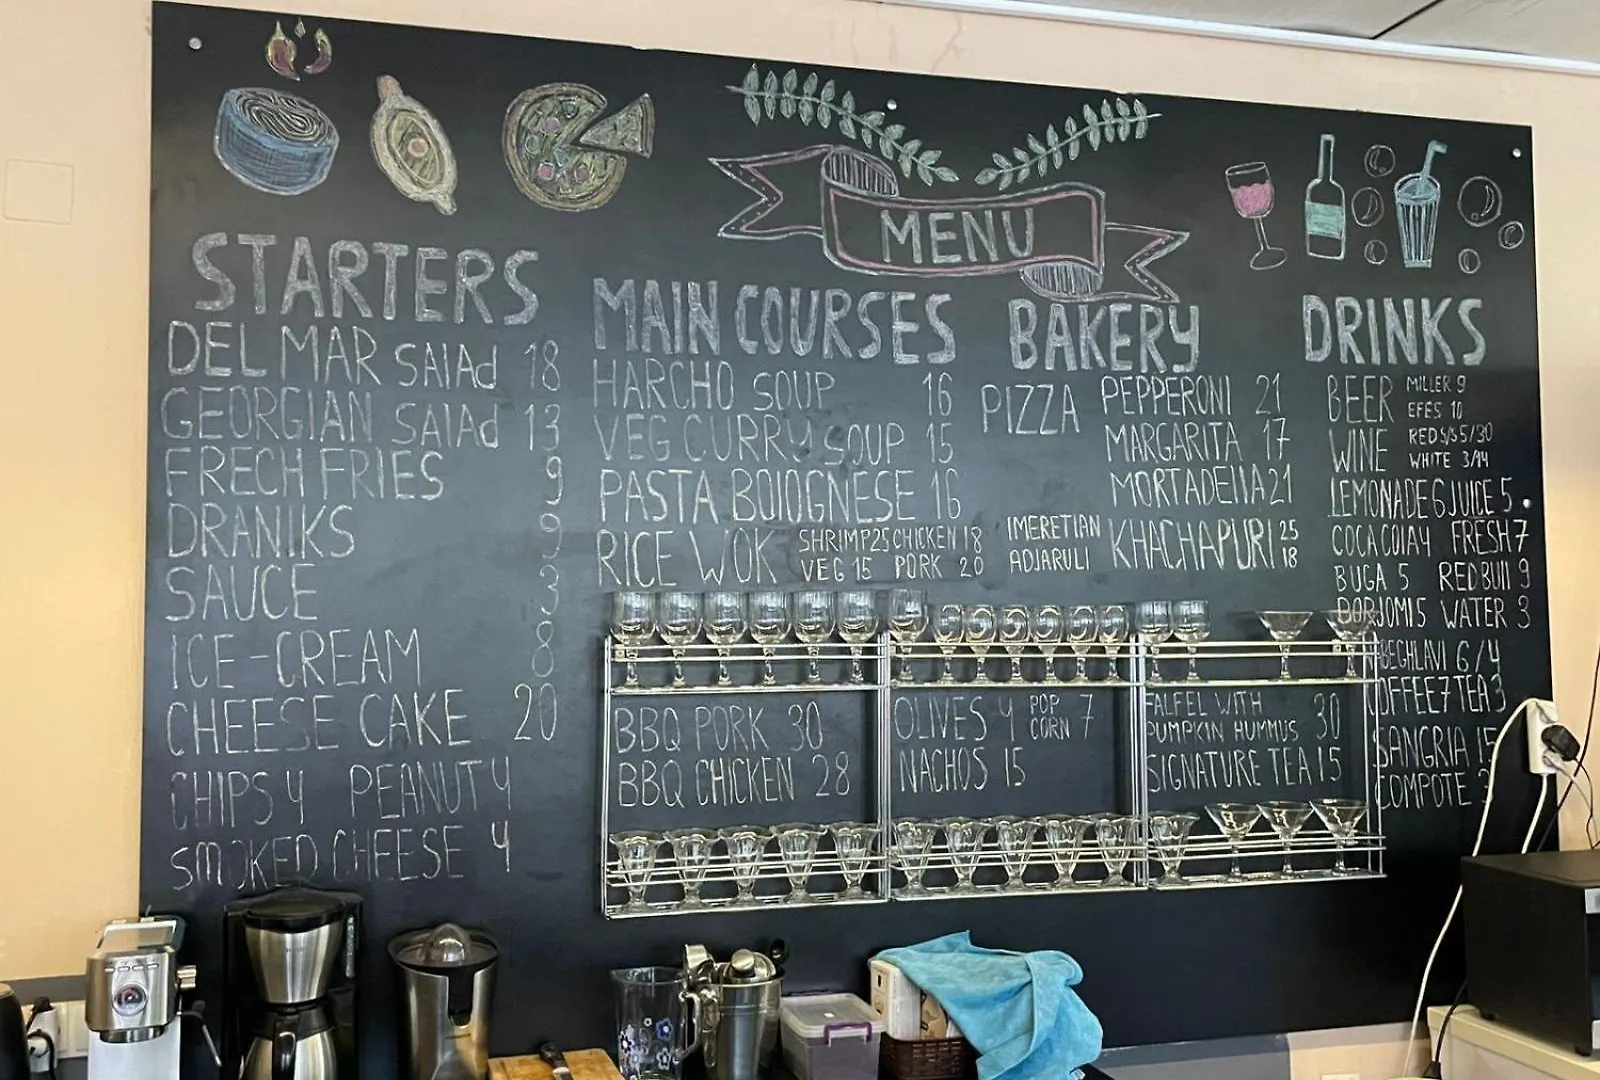 MENU
STARTERS
DEL MAR SAlAd 18
GEORGIAN SAlAd 13
FRECH FRIES 9
DRANIKS 9
SAUCE 3
ICE-CREAM 8
CHEESE CAKE 20
CHIPS 4 PEANUT 4
SMOKED CHEESE 4
MAIN COURSES
HARCHO SOUP 16
VEG CURRY SOUP 15
PASTA BOlOGNESE 16
RICE WOK SHRIMP 25 CHICKEN 18
VEG 15 PORK 20
BBQ PORK 30
BBQ CHICKEN 28
OLIVES 4 POP CORN 7
NACHOS 15
BAKERY
PIZZA PEPPERONI 21
MARGARITA 17
MORTADEllA 21
IMERETIAN KHACHAPURI 25
ADJARULI 18
FALFEL WITH
PUMPKIN HUMMUS 30
SIGNATURE TEA 15
DRINKS
BEER MILLER 9
EFES 10
WINE RED S/S 5/30
WHITE 3/14
LEMONADE 6 JUICE 5
COCA COlA 4 FRESH 7
BUGA 5 REDBUll 9
BORJOMI 5 WATER 3
BEGHLAVI 6/4
OFFEE 7 TEA 3
SANGRIA 15
COMPOTE